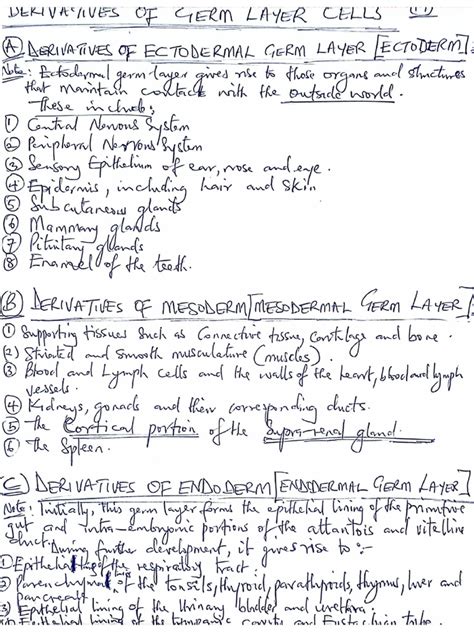 DERIVATIVES OF GERM LAYER CELLS
(A) DERIVATIVES OF ECTODERMAL GERM LAYER [ECTODERM]:
Note: Ectodermal germ layer gives rise to those organs and structures
that maintain contact with the outside world.
These include;
(1) Central Nervous System
(2) Peripheral Nervous System
(3) Sensory Epithelium of ear, nose and eye.
(4) Epidermis, including hair and skin
(5) Subcutaneous glands
(6) Mammary glands
(7) Pituitary glands
(8) Enamel of the teeth.
(B) DERIVATIVES OF MESODERM [MESODERMAL GERM LAYER]:
(1) Supporting tissues such as Connective tissue, cartilage and bone.
(2) Striated and smooth musculature (muscles).
(3) Blood and Lymph cells and the walls of the heart, blood and lymph
vessels.
(4) Kidneys, gonads and their corresponding ducts.
(5) The Cortical portion of the Supra-renal gland.
(6) The Spleen.
(C) DERIVATIVES OF ENDODERM [ENDODERMAL GERM LAYER]
Note: Initially, this germ layer forms the epithelial lining of the primitive
gut and intra-embryonic portions of the allantois and vitelline
duct. During further development, it gives rise to :-
(1) Epithelial of the respiratory tract.
(2) parenchyma of the tonsils, thyroid, parathyroids, thymus, liver and
pancreas.
(3) Epithelial lining of the Urinary bladder and urethra.
Epithelial lining of the tympanic cavity and Eustachian tube.